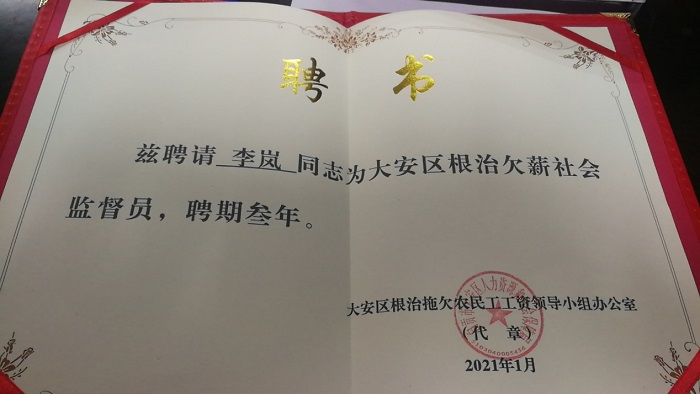 聘 书
兹聘请 李岚 同志为大安区根治欠薪社会
监督员，聘期叁年。
大安区根治拖欠农民工工资领导小组办公室
（代 章）
2021年1月